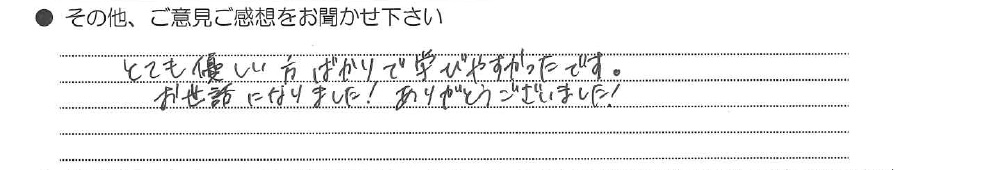 ● その他、ご意見ご感想をお聞かせ下さい
とても優しい方ばかりで学びやすかったです。
お世話になりました！ありがとうございました！